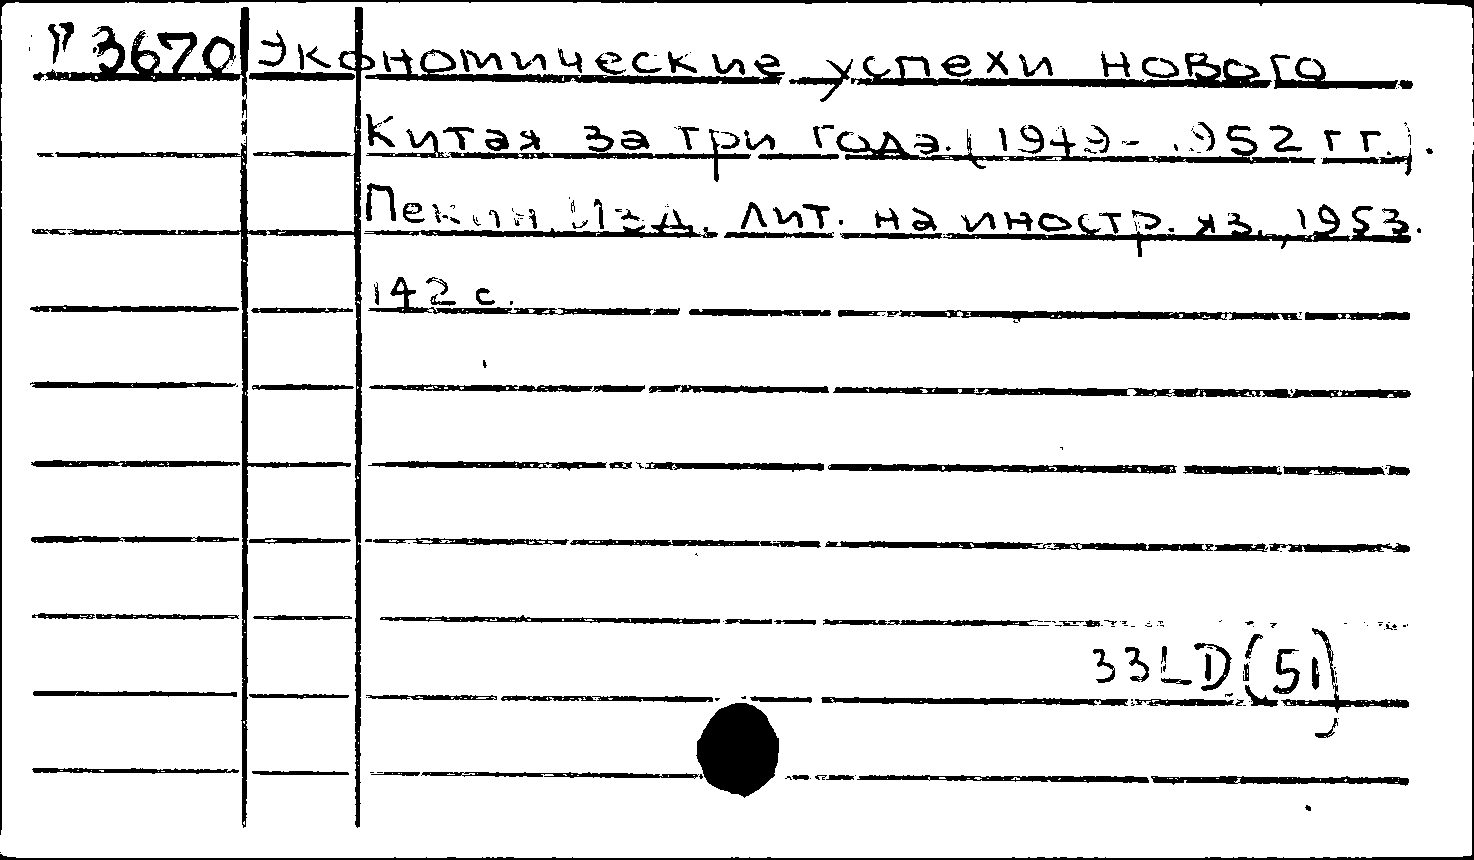 Р 3670 Экономические успехи нового
Китая за три года. (1949-1952 гг.).
Пекин. Изд. лит. на иностр. яз., 1953.
142 с.
33LD(51)